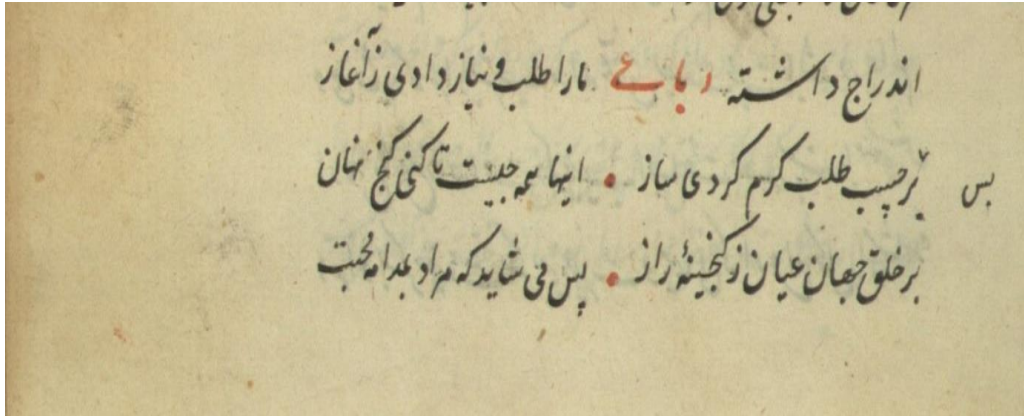 اندراج داشته رباعی مارا طلب و نیاز دادی ز آغاز
بر حسب طلب کرم کردی ساز • اینها همه چیست تا کنی گنج نهان
بس
بر خلق جهان عیان ز گنجینهٔ راز • پس می شاید که مراد محبت